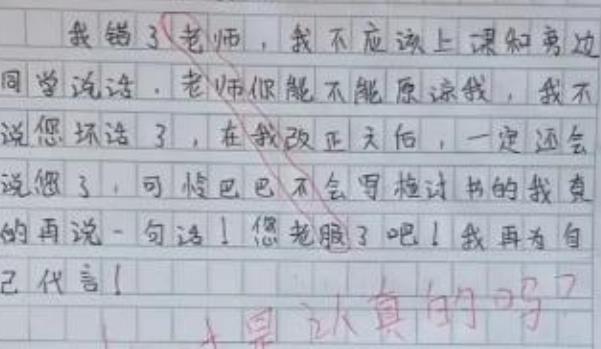 我错了老师，我不应该上课和旁边
同学说话．老师你能不能原谅我，我不
说您坏话了，在我改正天后，一定还会
说您了，可怜巴巴不会写检讨书的我真
的再说一句话！您老服了吧！我再为自
己代言！
是认真的吗？